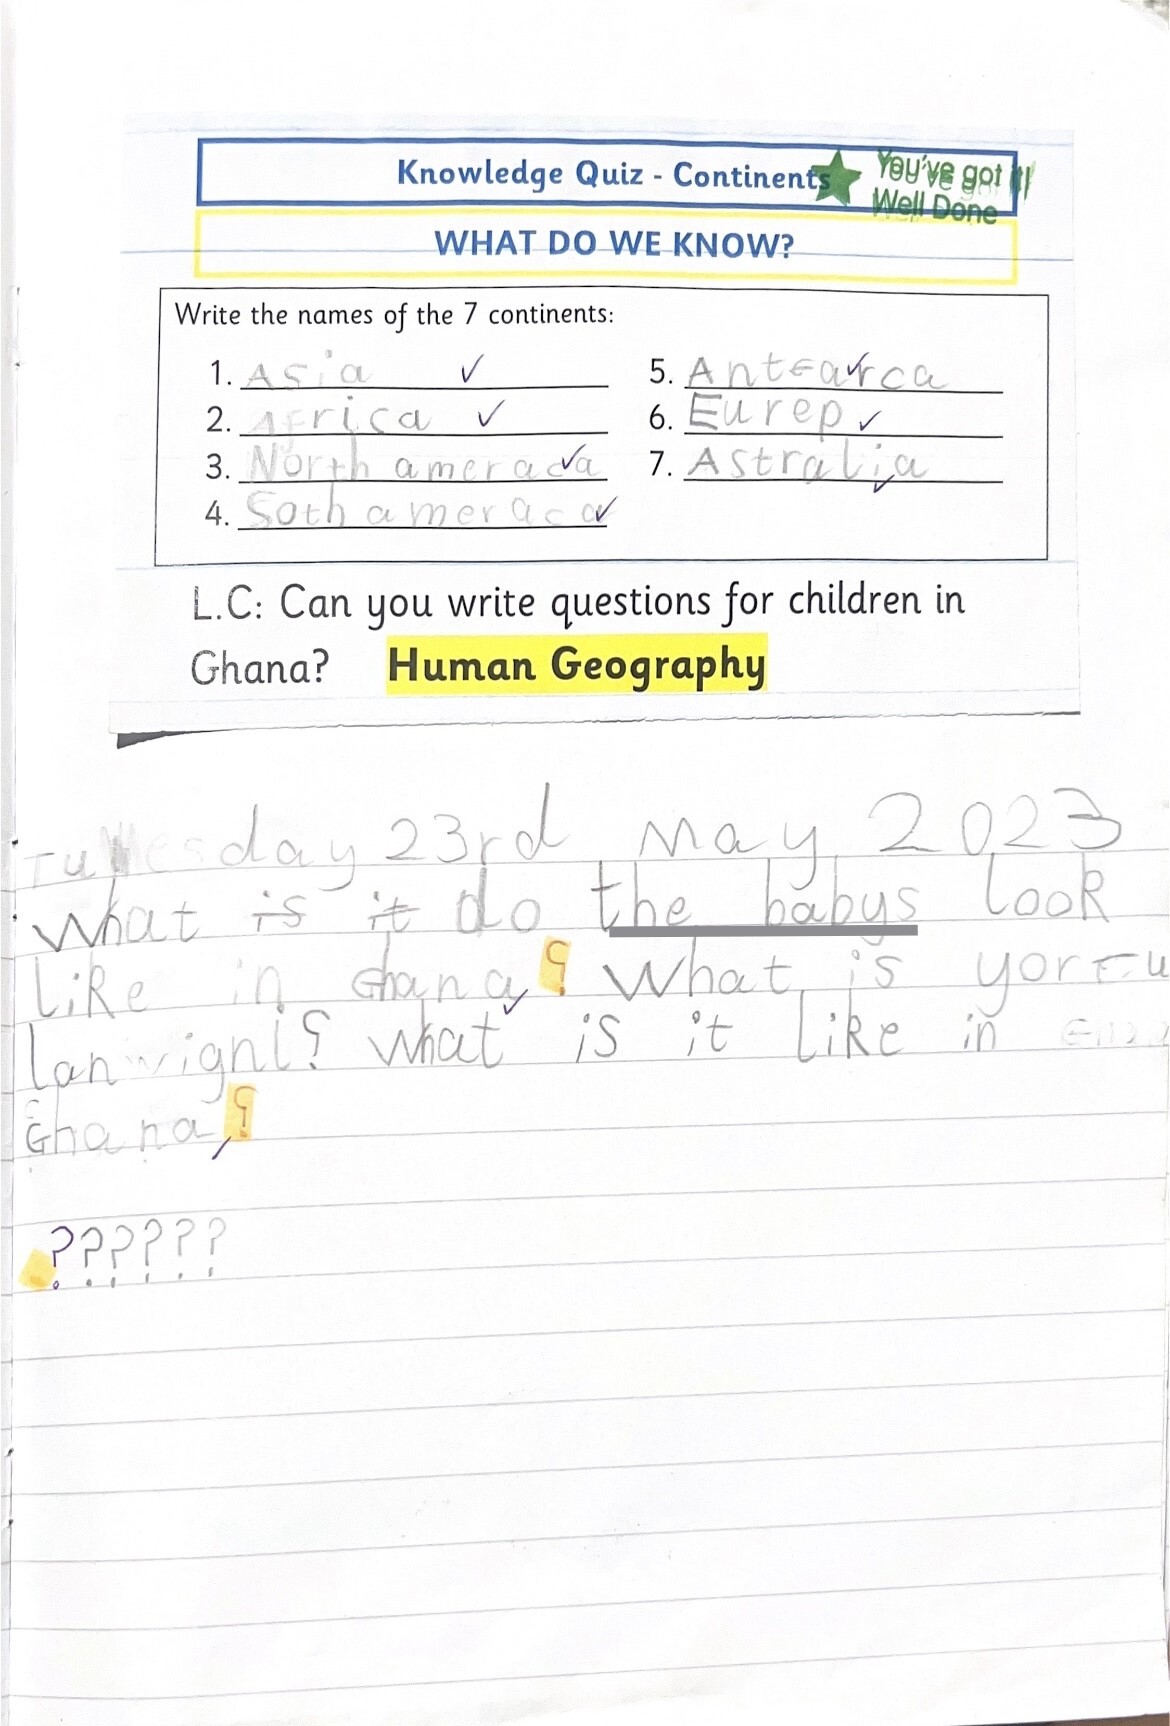 Knowledge Quiz - Continents
You've got it!
Well Done
WHAT DO WE KNOW?
Write the names of the 7 continents:
1. Asia
2. Africa
3. North ameraca
4. Soth ameraca
5. Antearca
6. Eurep
7. Astralia
L.C: Can you write questions for children in
Ghana? Human Geography
Tuesday 23rd May 2023
What is it do the babys look
like in Ghana? What is yor
lanwignl? What is it like in
Ghana?
??????